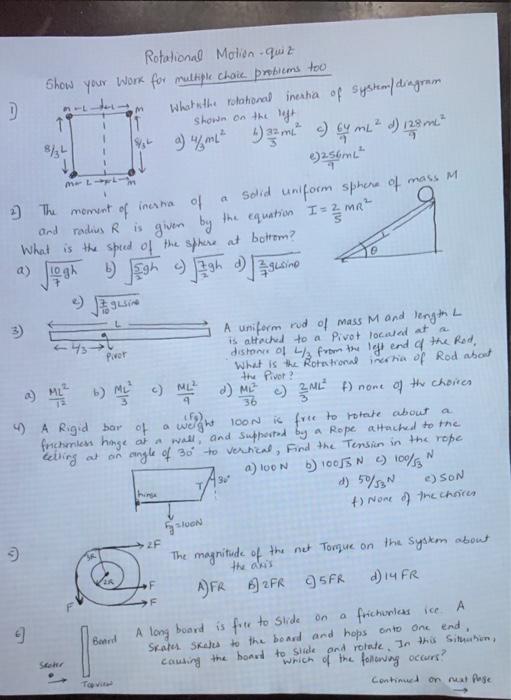 Rotational Motion - quiz
Show your work for multiple choice problems too
1)
m ←L→ ←L→ m
8/3L
8/3L
m ←L→ ←L→ m
What is the rotational inertia of system/diagram
shown on the left
a) 4/3 mL² b) 32/3 mL² c) 64/9 mL² d) 128/9 mL²
e) 256/9 mL²
2) The moment of inertia of a solid uniform sphere of mass M
and radius R is given by the equation I = 2/5 MR²
What is the speed of the sphere at bottom?
a) √(10/7 gh) b) √(5/2 gh) c) √(7/2 gh) d) √(2/7 gLsinθ)
e) √(7/10 gLsinθ)
L
θ
3)
L
L/3
Pivot
A uniform rod of mass M and length L
is attached to a Pivot located at a
distance of L/3 from the left end of the Rod,
What is the Rotational inertia of Rod about
the Pivot?
a) ML²/12 b) ML²/3 c) ML²/9 d) ML²/36 e) 2/3 ML² f) none of the choices
4) A Rigid bar of a weight (Fg) 100N is free to rotate about a
frictionless hinge at a wall, and supported by a Rope attached to the
ceiling at an angle of 30° to vertical, Find the Tension in the rope
a) 100 N b) 100√3 N c) 100/√3 N
d) 50/√3 N e) 50N
f) None of the choices
hinge
T
30°
Fg = 100N
5)
2F
3R
2R
F
F
F
The magnitude of the net Torque on the System about
the axis
A) FR B) 2FR C) 5FR d) 14 FR
6)
Board
Skater
Topview
A long board is free to slide on a frictionless ice. A
Skater skates to the board and hops onto one end,
causing the board to slide and rotate. In this situation,
which of the following occurs?
Continued on next Page